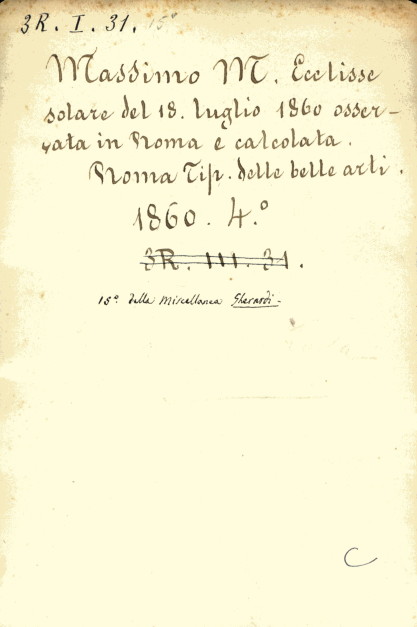 3R. I. 31. 15°
Massimo M. Ecclisse
solare del 18. luglio 1860 osser-
vata in Roma e calcolata.
Roma Tip. delle belle arti.
1860. 4.°
3R. III. 31.
15° della Miscellanea Gherardi-
C